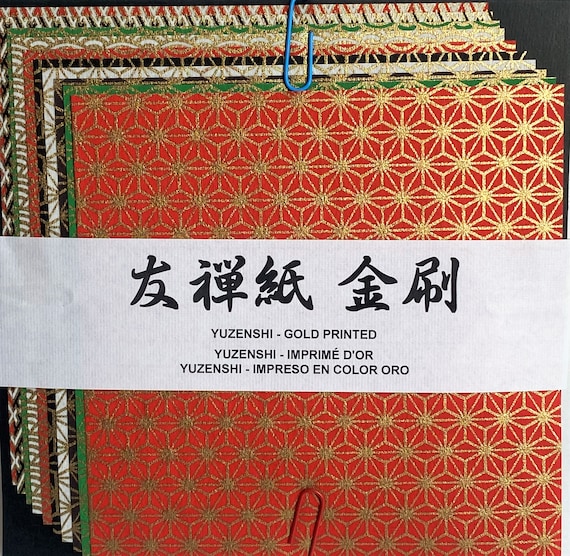 友禅紙 金刷
YUZENSHI - GOLD PRINTED
YUZENSHI - IMPRIMÉ D'OR
YUZENSHI - IMPRESO EN COLOR ORO